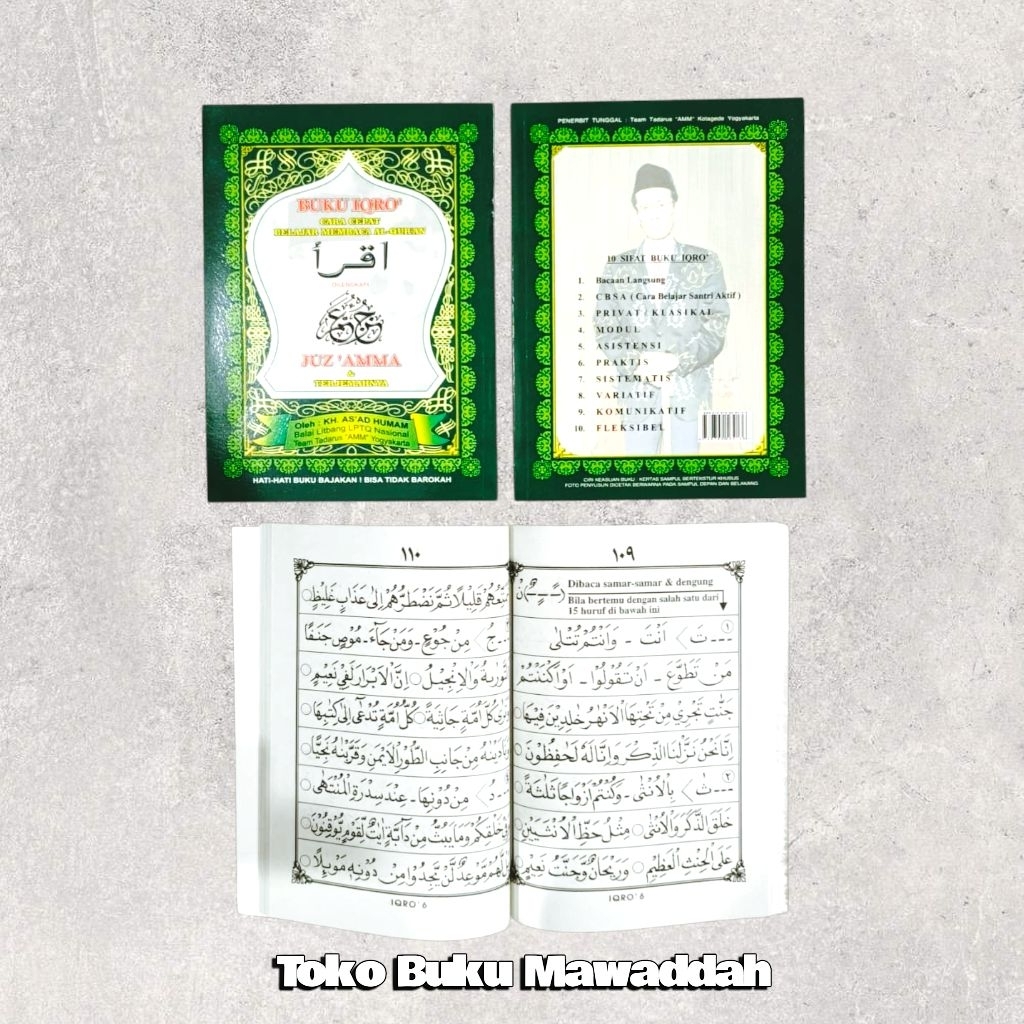 BUKU IQRO'
CARA CEPAT
BELAJAR MEMBACA AL-QUR'AN
اقرأ
DILENGKAPI
جزء عم
JUZ 'AMMA
&
TERJEMAHNYA
Oleh : KH. AS'AD HUMAM
Balai Litbang LPTQ Nasional
Team Tadarus "AMM" Yogyakarta
HATI-HATI BUKU BAJAKAN ! BISA TIDAK BAROKAH
PENERBIT TUNGGAL : Team Tadarus "AMM" Kotagede Yogyakarta
10 SIFAT BUKU IQRO'
1. Bacaan Langsung
2. C B S A ( Cara Belajar Santri Aktif )
3. PRIVAT / KLASIKAL
4. MODUL
5. ASISTENSI
6. PRAKTIS
7. SISTEMATIS
8. VARIATIF
9. KOMUNIKATIF
10. FLEKSIBEL
CIRI KEASLIAN BUKU : KERTAS SAMPUL BERTEKSTUR KHUSUS
FOTO PENYUSUN DICETAK BERWARNA PADA SAMPUL DEPAN DAN BELAKANG
١٠٩
Dibaca samar-samar & dengung
Bila bertemu dengan salah satu dari
15 huruf di bawah ini
١ ...تَ › اَنْتَ - وَاَنْتُمْ تُتْلٰى
مَنْ تَطَوَّعَ - اَنْ تَقُولُوا - اَوْ اَكْنَنْتُمْ
جَنّٰتٍ تَجْرِيْ مِنْ تَحْتِهَا الْاَنْهٰرُ خٰلِدِيْنَ فِيْهَا
اِنَّا نَحْنُ نَزَّلْنَا الذِّكْرَ وَاِنَّا لَهُ لَحٰفِظُوْنَ
٢ ...ثَ › بِالْاُنْثٰى - وَكُنْتُمْ اَزْوَاجًا ثَلٰثَةً
خَلَقَ الذَّكَرَ وَالْاُنْثٰى مِثْلُ حَظِّ الْاُنْثَيَيْنِ
عَلَى الْحِنْثِ الْعَظِيْمِ وَرَيْحَانٌ وَّجَنَّتُ نَعِيْمٍ
IQRO' 6
١١٠
نُمَتِّعُهُمْ قَلِيْلًا ثُمَّ نَضْطَرُّهُمْ اِلٰى عَذَابٍ غَلِيْظٍ
...جُ › مِنْ جُوْعٍ - وَمَنْ جَاءَ - مُوْصٍ جَنَفًا
التَّوْرٰىةُ وَالْاِنْجِيْلُ اِنَّ الْاَبْرَارَ لَفِيْ نَعِيْمٍ
وَتَرٰى كُلَّ اُمَّةٍ جَاثِيَةً كُلُّ اُمَّةٍ تُدْعٰى اِلٰى كِتٰبِهَا
وَنَادَيْنٰهُ مِنْ جَانِبِ الطُّوْرِ الْاَيْمَنِ وَقَرَّبْنٰهُ نَجِيًّا
...دُ › مِنْ دُوْنِهَا - عِنْدَ سِدْرَةِ الْمُنْتَهٰى
فِيْ خَلْقِكُمْ وَمَا يَبُثُّ مِنْ دَابَّةٍ اٰيٰتٌ لِّقَوْمٍ يُّوْقِنُوْنَ
بَلْ لَهُمْ مَّوْعِدٌ لَّنْ يَّجِدُوْا مِنْ دُوْنِهٖ مَوْئِلًا
IQRO' 6
Toko Buku Mawaddah